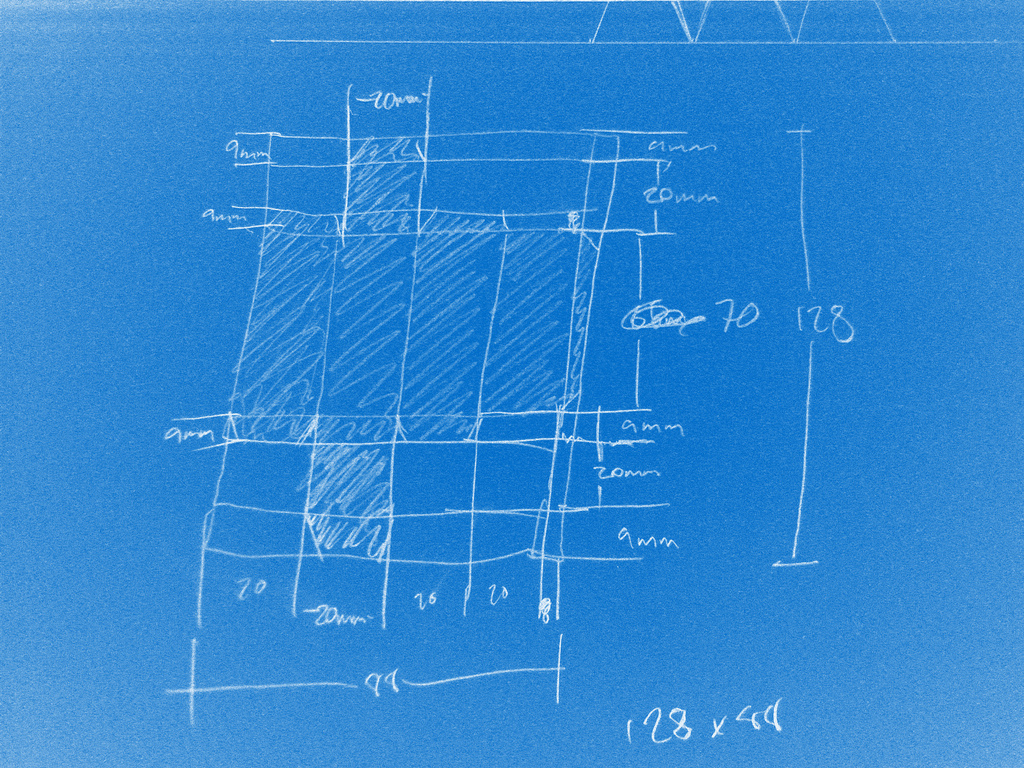 20mm
9mm
9mm
20mm
9mm
8
70
128
9mm
9mm
20mm
9mm
20
20mm
20
20
8
88
128 x 88